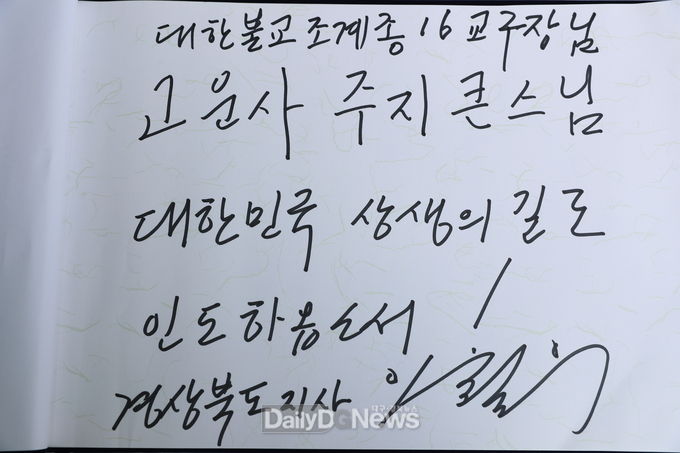 대한불교조계종 16교구장님
고운사 주지 큰스님
대한민국 상생의 길로
인도하옵소서!
경상북도지사 이철우
DailyDGNews